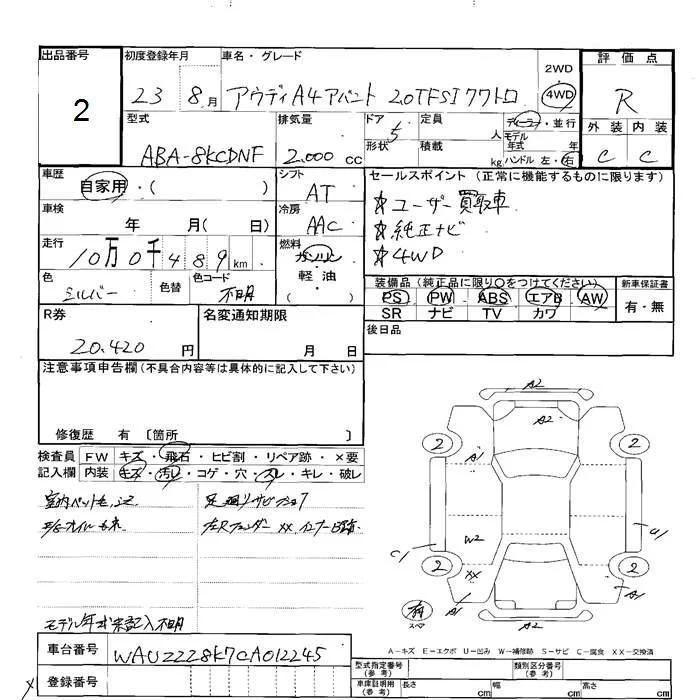 出品番号 初度登録年月 車名・グレード 評価点
2 23 8月 アウディA4アバント 2.0TFSIクワトロ 2WD 4WD R
型式 排気量 ドア 定員 ディーラー・並行 外装 内装
ABA-8KCDNF 2.000 cc 5 人 モデル年式 年 C C
形状 積載 kg ハンドル 左・右
車歴 シフト セールスポイント (正常に機能するものに限ります)
自家用・( ) AT ☆ユーザー買取車
車検 冷房 ☆純正ナビ
年 月( 日) AAC ☆4WD
走行 燃料
10万0千489km ガソリン
色 色替 色コード 軽・油 装備品(純正品に限り○をつけてください) 新車保証書
シルバー 不明 PS・PW・ABS・エアB・AW 有・無
SR ナビ TV カワ
R券 名変通知期限 後日品
20.420 円 月 日
注意事項申告欄(不具合内容等は具体的に記入して下さい)
修復歴 有 〔箇所 〕
検査員 FW キズ・飛石・ヒビ割・リペア跡・×要
記入欄 内装 キズ・汚れ・コゲ・穴・スレ・キレ・破レ
室内ペット毛 足廻りサビ
左Rフェンダー XX
モデル年式未記入不明
A2
A2
2 A1 2
C1 W2 U1
2 XX 2
A1 A1
有
スペア
A2
A-キズ E-エクボ U-凹み W-補修跡 S-サビ C-腐食 XX-交換済
車台番号 WAUZZZ8K7CA012245
型式指定番号(参考) 類別区分番号(参考)
登録番号 車庫証明用(参考) 長さ cm 幅 cm 高さ cm